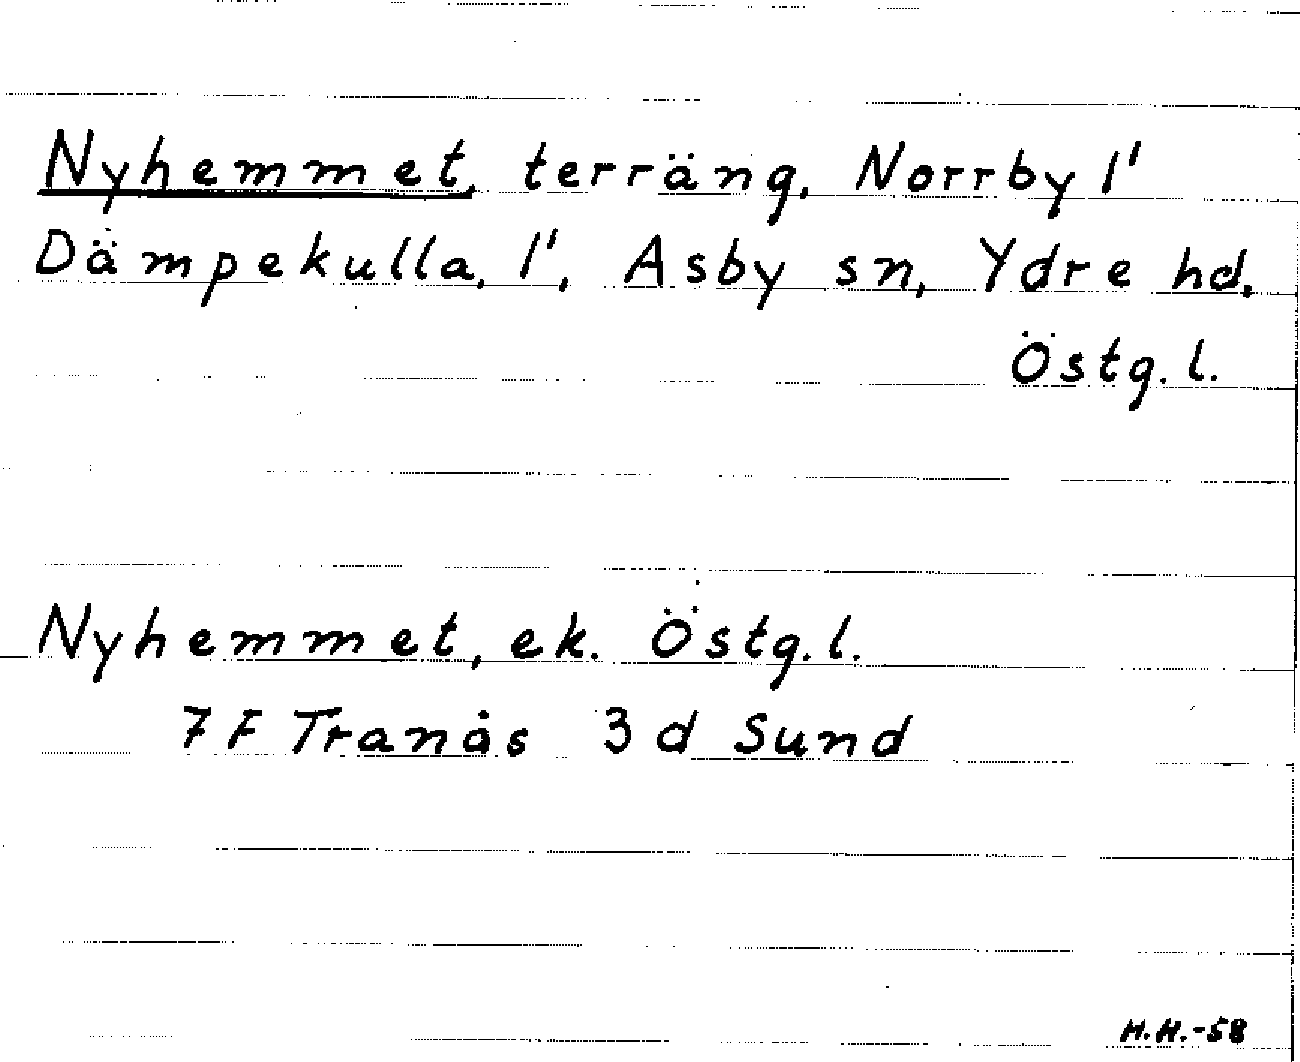 Nyhemmet, terräng, Norrby 1'
Dämpekulla, 1', Asby sn, Ydre hd.
Östg. l.
Nyhemmet, ek. Östg. l.
7 F Tranås 3 d Sund
H.H.-58